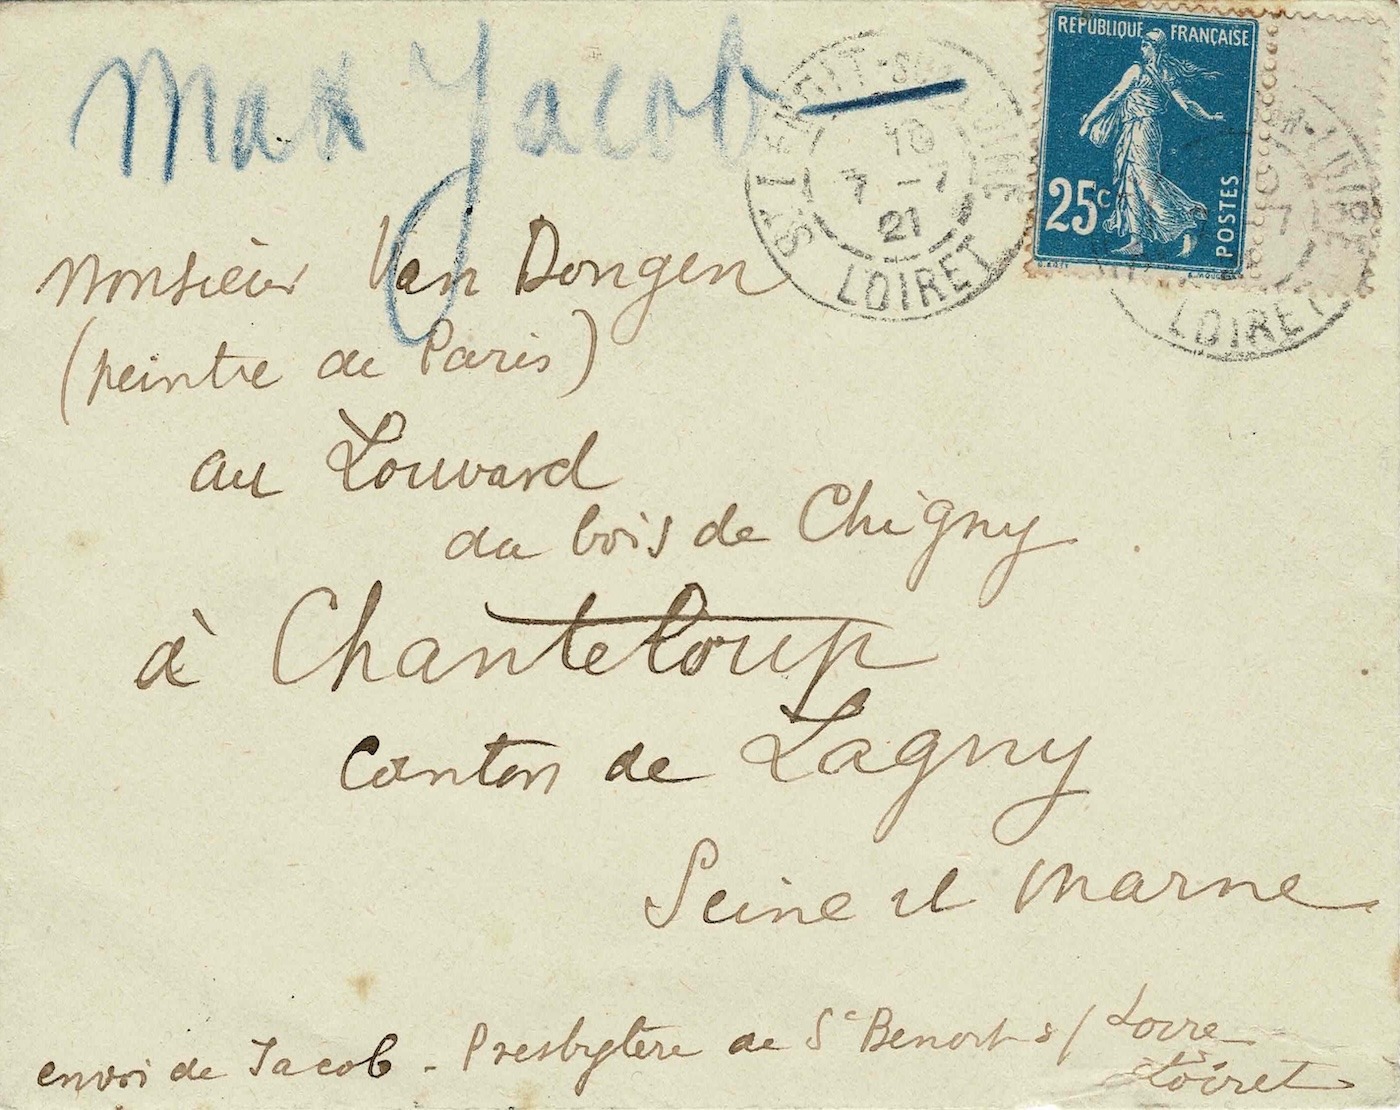 Max Jacob
RÉPUBLIQUE FRANÇAISE
25c
POSTES
ST BENOIT-SUR-LOIRE
10
7 -7
21
LOIRET
LOIRET
Monsieur Van Dongen
(peintre de Paris)
au Louvard
du bois de Chigny
à Chanteloup
Canton de Lagny
Seine et Marne
envoi de Jacob - Presbytère de St Benoit s/ Loire
Loiret